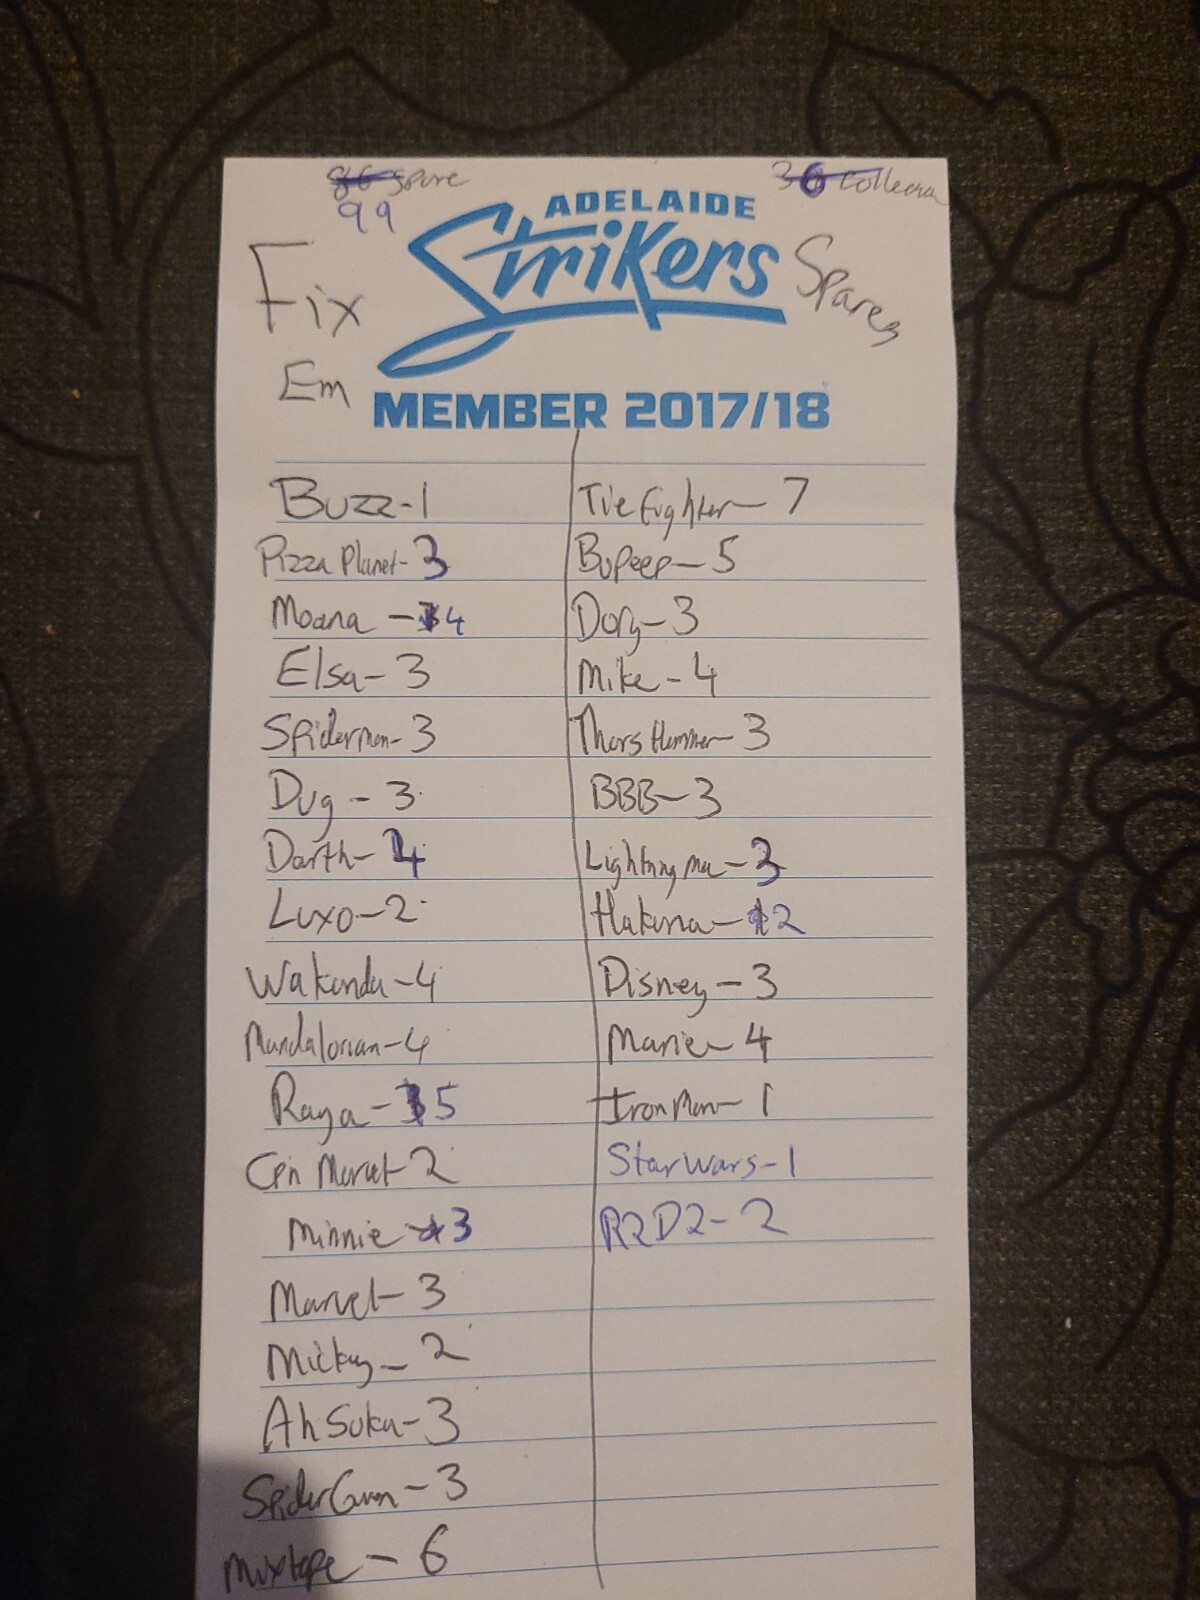 spare
99
36 collection
ADELAIDE
Strikers
Fix
Em
Spares
MEMBER 2017/18
Buzz-1
Pizza Planet-3
Moana - 4
Elsa- 3
Spiderman- 3
Dug - 3
Darth- 4
Luxo-2
Wakanda-4
Mandalorian-4
Raya- 5
Cpn Marvel-2
Minnie 3
Marvel- 3
Micky- 2
AhSoka- 3
SpiderGwen - 3
Mixtape - 6
Tie fighter- 7
Bopeep- 5
Dory- 3
Mike - 4
Thors Hammer- 3
BBB- 3
Lightning Mc- 3
Hakuna- 2
Disney - 3
Marie- 4
Iron Man- 1
Star Wars- 1
R2D2- 2